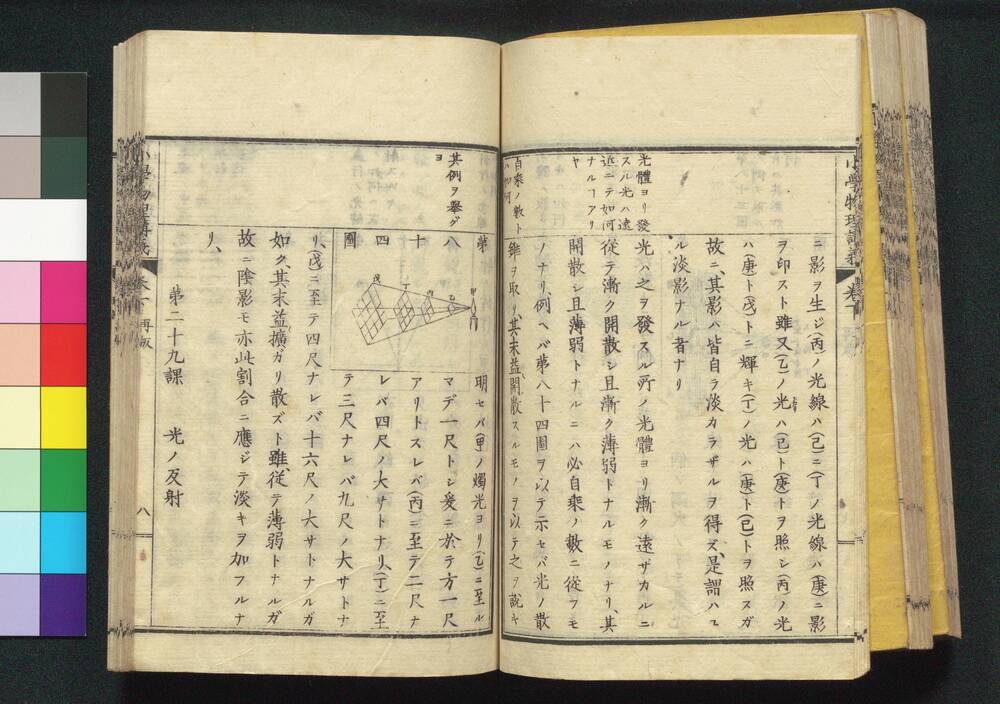 小學物理講義 卷下
ニ影ヲ生ジ(丙)ノ光線ハ(己)ニ(丁)ノ光線ハ(庚)ニ影
ヲ印スト雖又(乙)ノ光ハ(己)ト(庚)トヲ照シ(丙)ノ光
ハ(庚)ト(戊)トニ輝キ(丁)ノ光ハ(庚)ト(己)トヲ照スガ
故ニ、其影ハ皆自ラ淡カラザルヲ得ズ、是謂ハユ
ル淡影ナル者ナリ
光體ヨリ發
スル光ハ遠
近ニテ如何
ナルヿアリ
ヤ
光ハ之ヲ發スル所ノ光體ヨリ漸ク遠ザカルニ
從テ漸ク開散シ且漸ク薄弱トナルモノナリ、其
開散シ且薄弱トナルニハ必自乘ノ數ニ從フモ
ノナリ、例ヘバ第八十四圖ヲ以テ示セバ光ノ散
自乘ノ數ト
ハ如何
錐ヲ取リ、其末益開散スルモノヲ以テ之ヲ說キ
第八十四圖
甲
乙
丙
丁
戊
明セバ(甲)ノ燭光ヨリ(乙)ニ至ル
マデ一尺トシ爰ニ於テ方一尺
アリトスレバ(丙)ニ至テ二尺ナ
レバ四尺ノ大サトナリ、(丁)ニ至
テ三尺ナレバ九尺ノ大サトナ
其例ヲ擧ゲ
ヨ
リ、(戊)ニ至テ四尺ナレバ十六尺ノ大サトナルガ
如ク、其末益擴ガリ散ズト雖、從テ薄弱トナルガ
故ニ陰影モ亦此割合ニ應ジテ淡キヲ加フルナ
リ、
第二十九課 光ノ反射
小學物理講義 卷下 再版 八